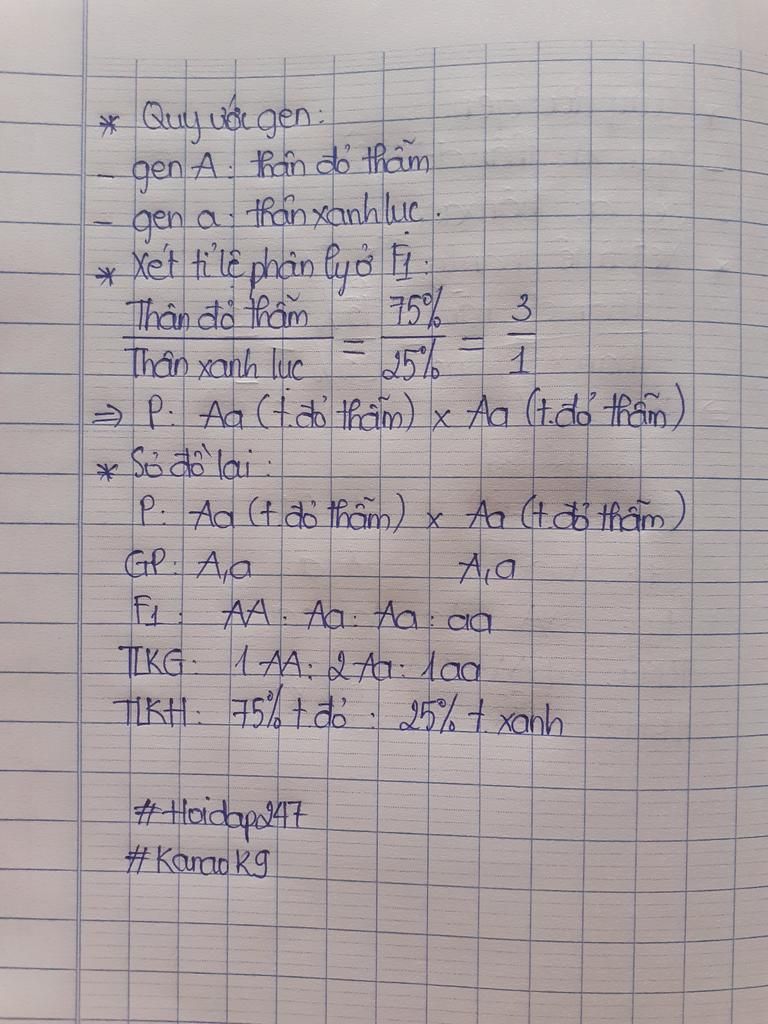 * Quy ước gen:
- gen A: thân đỏ thẫm
- gen a: thân xanh lục.
* Xét tỉ lệ phân ly ở F1:
Thân đỏ thẫm / Thân xanh lục = 75% / 25% = 3 / 1
⇒ P: Aa (t.đỏ thẫm) x Aa (t.đỏ thẫm)
* Sơ đồ lai:
P: Aa (t.đỏ thẫm) x Aa (t.đỏ thẫm)
GP: A,a A,a
F1: AA : Aa : Aa : aa
TLKG: 1 AA : 2 Aa : 1aa
TLKH: 75% t đỏ : 25% t xanh
#Hoidap247
#KaraoK9